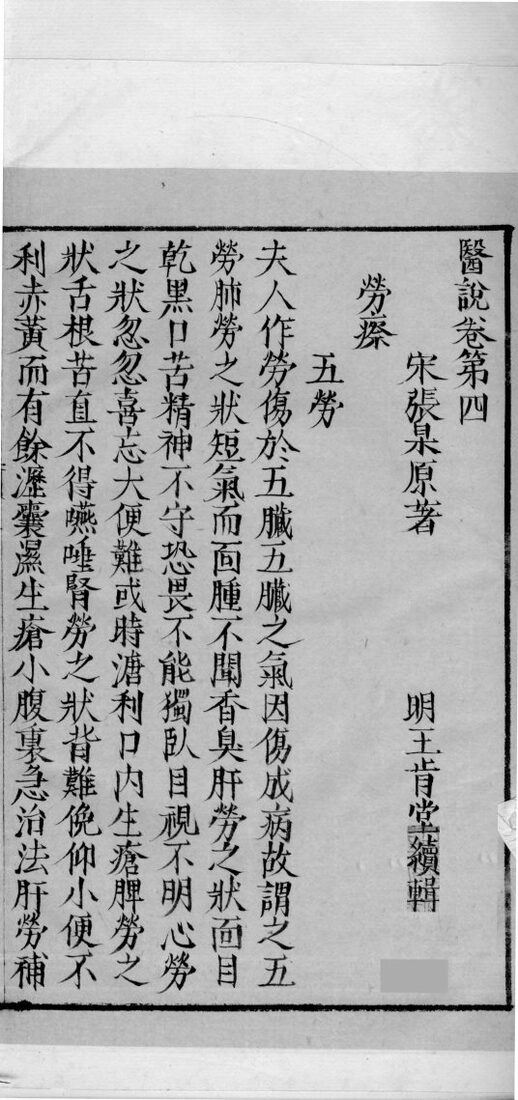 醫說卷第四
宋張杲原著 明王肯堂續輯
勞瘵
五勞
夫人作勞傷於五臟五臟之氣因傷成病故謂之五
勞肺勞之狀短氣而面腫不聞香臭肝勞之狀面目
乾黑口苦精神不守恐畏不能獨臥目視不明心勞
之狀忽忽喜忘大便難或時溏利口內生瘡脾勞之
狀舌根苦直不得嚥唾腎勞之狀背難俛仰小便不
利赤黃而有餘瀝囊濕生瘡小腹裏急治法肝勞補